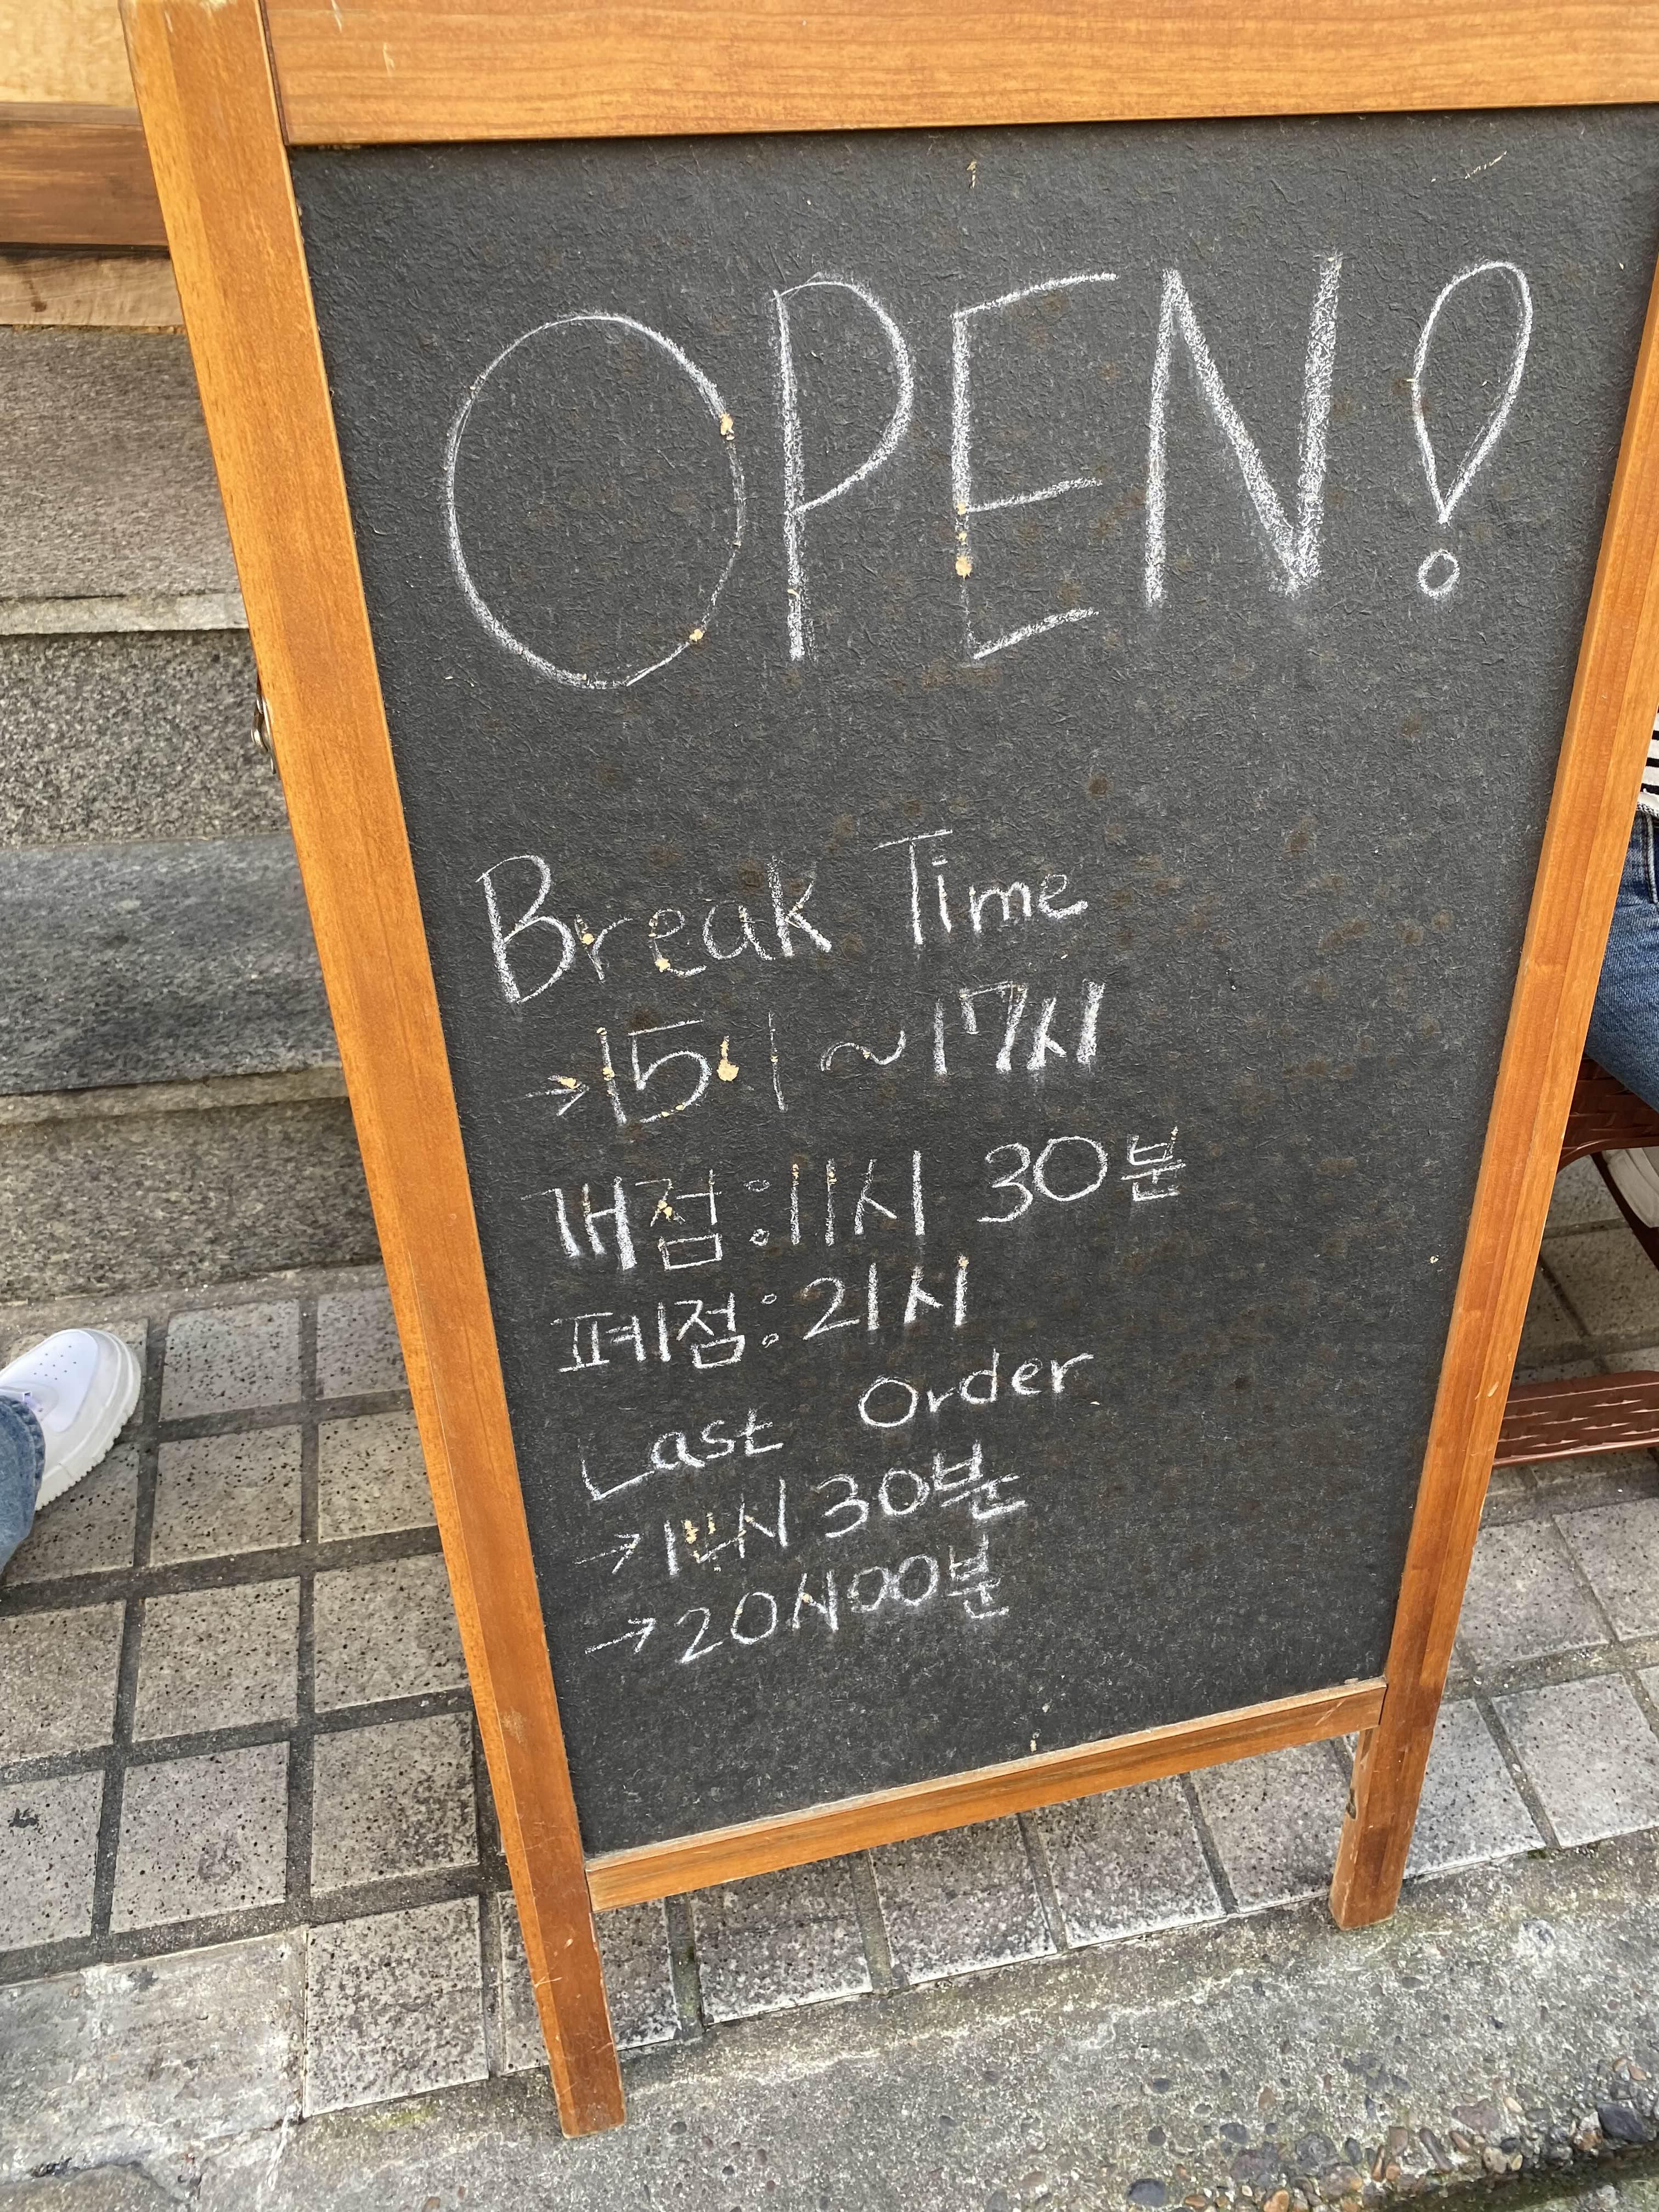 OPEN!
Break Time
→15시 ~ 17시
개점:11시 30분
폐점:21시
Last Order
→14시 30분
→20시00분